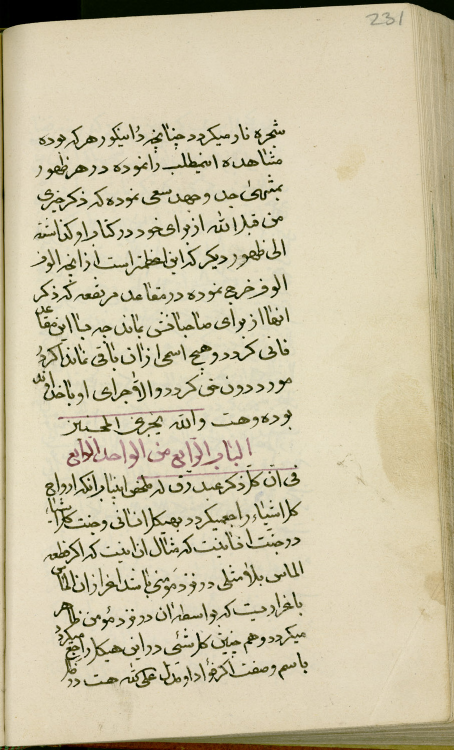 231
شجره نار میکردد چنانچه در اینکور هر که بوده
مشاهده اینمطلب را نموده در هر ظهور
بمنتهی جد و جهد سعی نموده که ذکر خیری
من قبل الله از برای خود در کتاب او کذاشته
الی ظهور دیکر که این اعظمتر است از آنچه الوف
الوف خرج نموده در مقاعد مرتفعه که ذکر
انها از برای صاحبانش بماند چه بسا این مقاعد
فانی کردد و هیچ اسمی از ان باقی نماند اکر در
مورد دون حق کردد والا جزای او با خداوند
بوده و هست والله یجزی المحسنین
الباب الرابع من الواحد الرابع
فی ان کل ذکر عبد رق له ملخص اینباب انکه ارواح
کل اشیاء راجع میکردد بهیکل انسانی و جنت کل اشیاء
در جنت انسانیت که مثال ان اینست که اکر قطعه
الماس بلا مثلی در نزد مؤمنی باشد اعزاز ان الماس
باعزازیست که بواسطه ان در نزد مؤمن ظاهر
میکردد و همچنین کل شئی در این هیکل راجع میکردد
باسم و صفت اکر فؤاد او مدل علی الله هست در